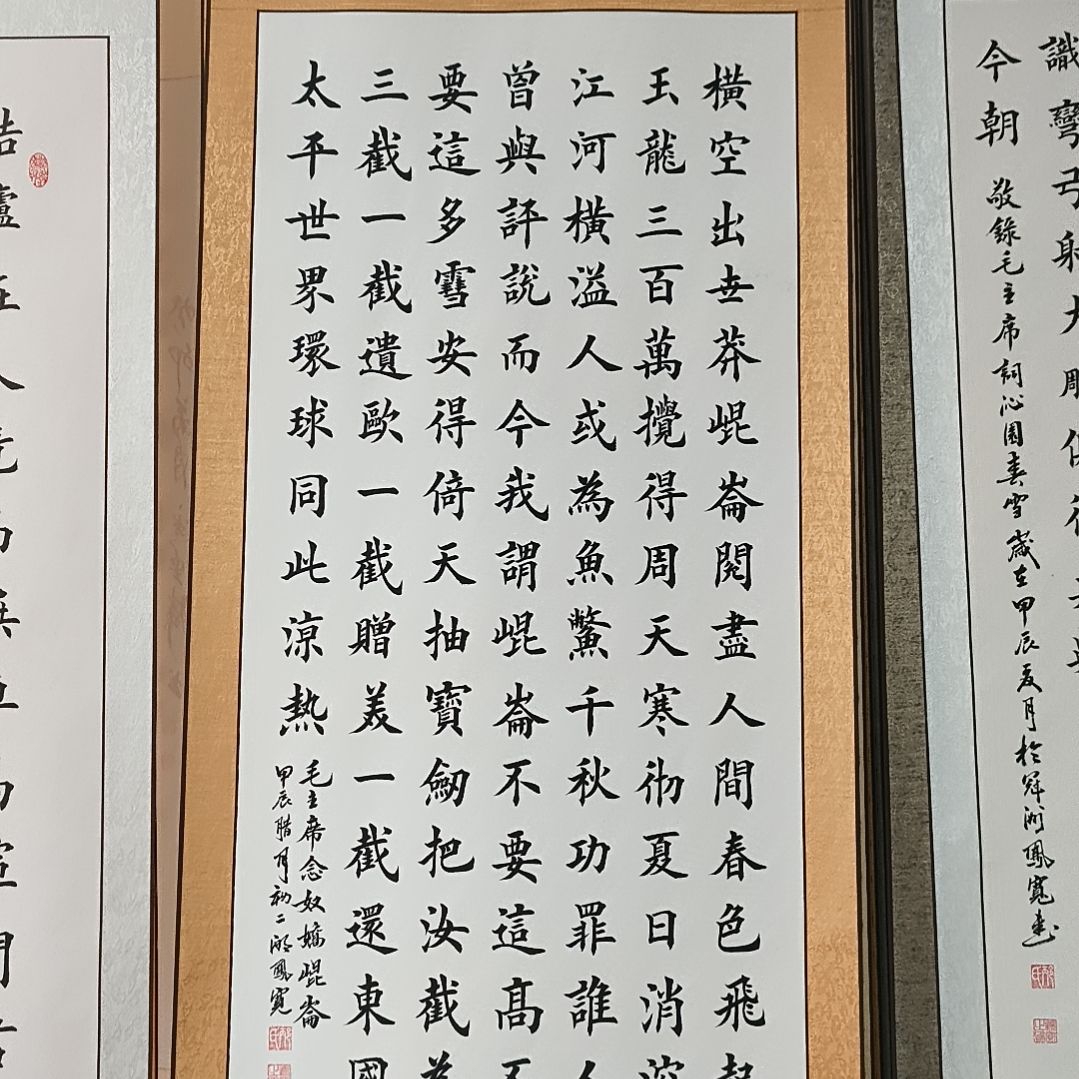 識彎弓射大雕俱往
今朝
敬錄毛主席詞沁園春雪歲在甲辰夏月於冠洲鳳寬書
橫空出世莽崐崙閱盡人間春色飛起
玉龍三百萬攪得周天寒彻夏日消溶
江河橫溢人或為魚鱉千秋功罪誰人
曾與評說而今我謂崐崙不要這高不
要這多雪安得倚天抽寶劒把汝截為
三截一截遺歐一截贈美一截還東國
太平世界環球同此涼熱
毛主席念奴嬌崐崙
甲辰腊月初二鳳寬
結廬在人境而無車馬喧問